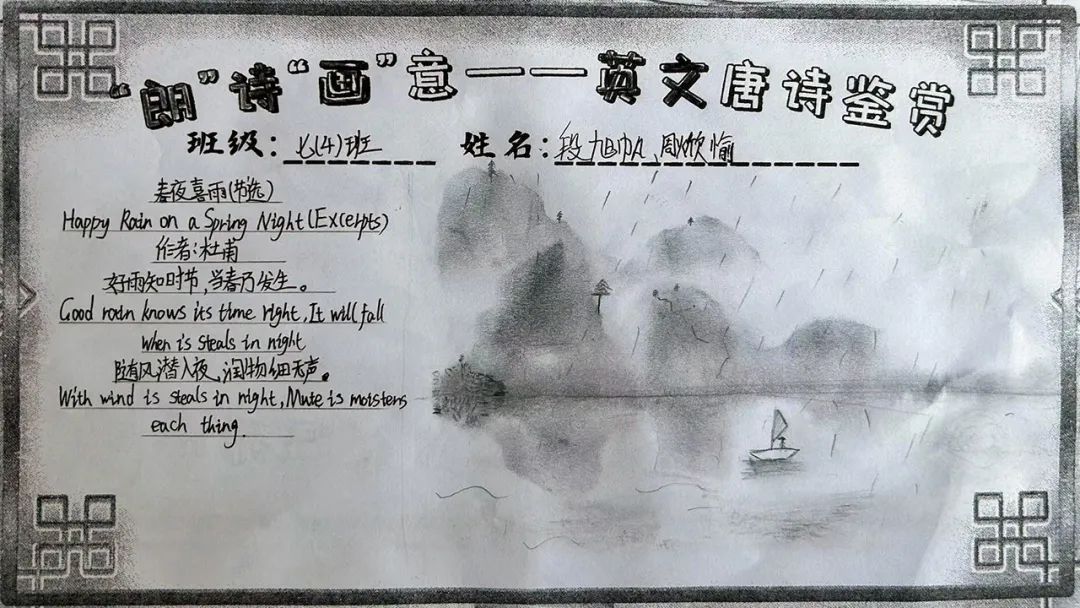 “朗”诗“画”意——英文唐诗鉴赏
班级：七(4)班 姓名：段旭帆、周欣愉
春夜喜雨(节选)
Happy Rain on a Spring Night(Excerpts)
作者:杜甫
好雨知时节,当春乃发生。
Good rain knows its time right,It will fall
when is steals in night
随风潜入夜,润物细无声。
With wind is steals in night,Mute is moistens
each thing.